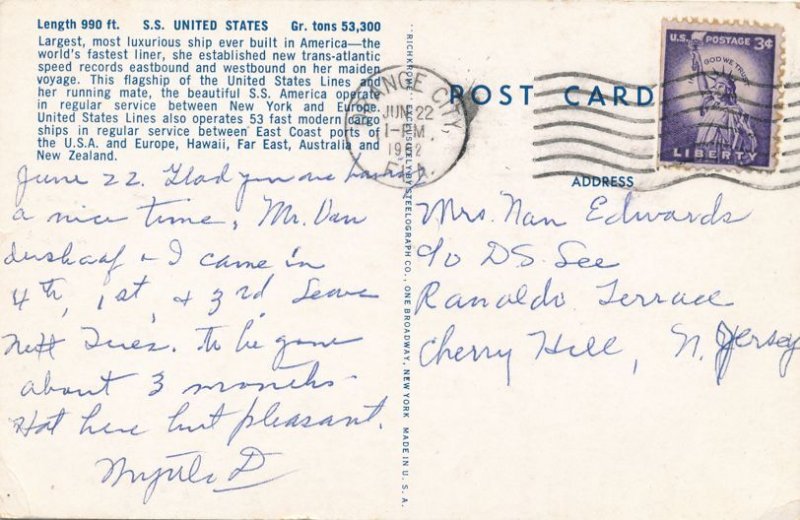 Length 990 ft. S.S. UNITED STATES Gr. tons 53,300
Largest, most luxurious ship ever built in America—the
world's fastest liner, she established new trans-atlantic
speed records eastbound and westbound on her maiden
voyage. This flagship of the United States Lines and
her running mate, the beautiful S.S. America operate
in regular service between New York and Europe.
United States Lines also operates 53 fast modern cargo
ships in regular service between East Coast ports of
the U.S.A. and Europe, Hawaii, Far East, Australia and
New Zealand.
June 22. Glad you are having
a nice time, Mr. Van
derschaaf & I came in
4th, 1st, & 3rd. Leave
next Tues. to be gone
about 3 months.
Hot here but pleasant.
Myrtle D
"RICHKROME" EXCLUSIVELY BY STEELOGRAPH CO., ONE BROADWAY, NEW YORK MADE IN U.S.A.
POST CARD
ANGE CITY,
JUN 22
1-PM
1962
FLA.
U.S. POSTAGE 3¢
IN GOD WE TRUST
LIBERTY
ADDRESS
Mrs. Nan Edwards
c/o DS. See
Ranoldo Terrace
Cherry Hill, N. Jersey